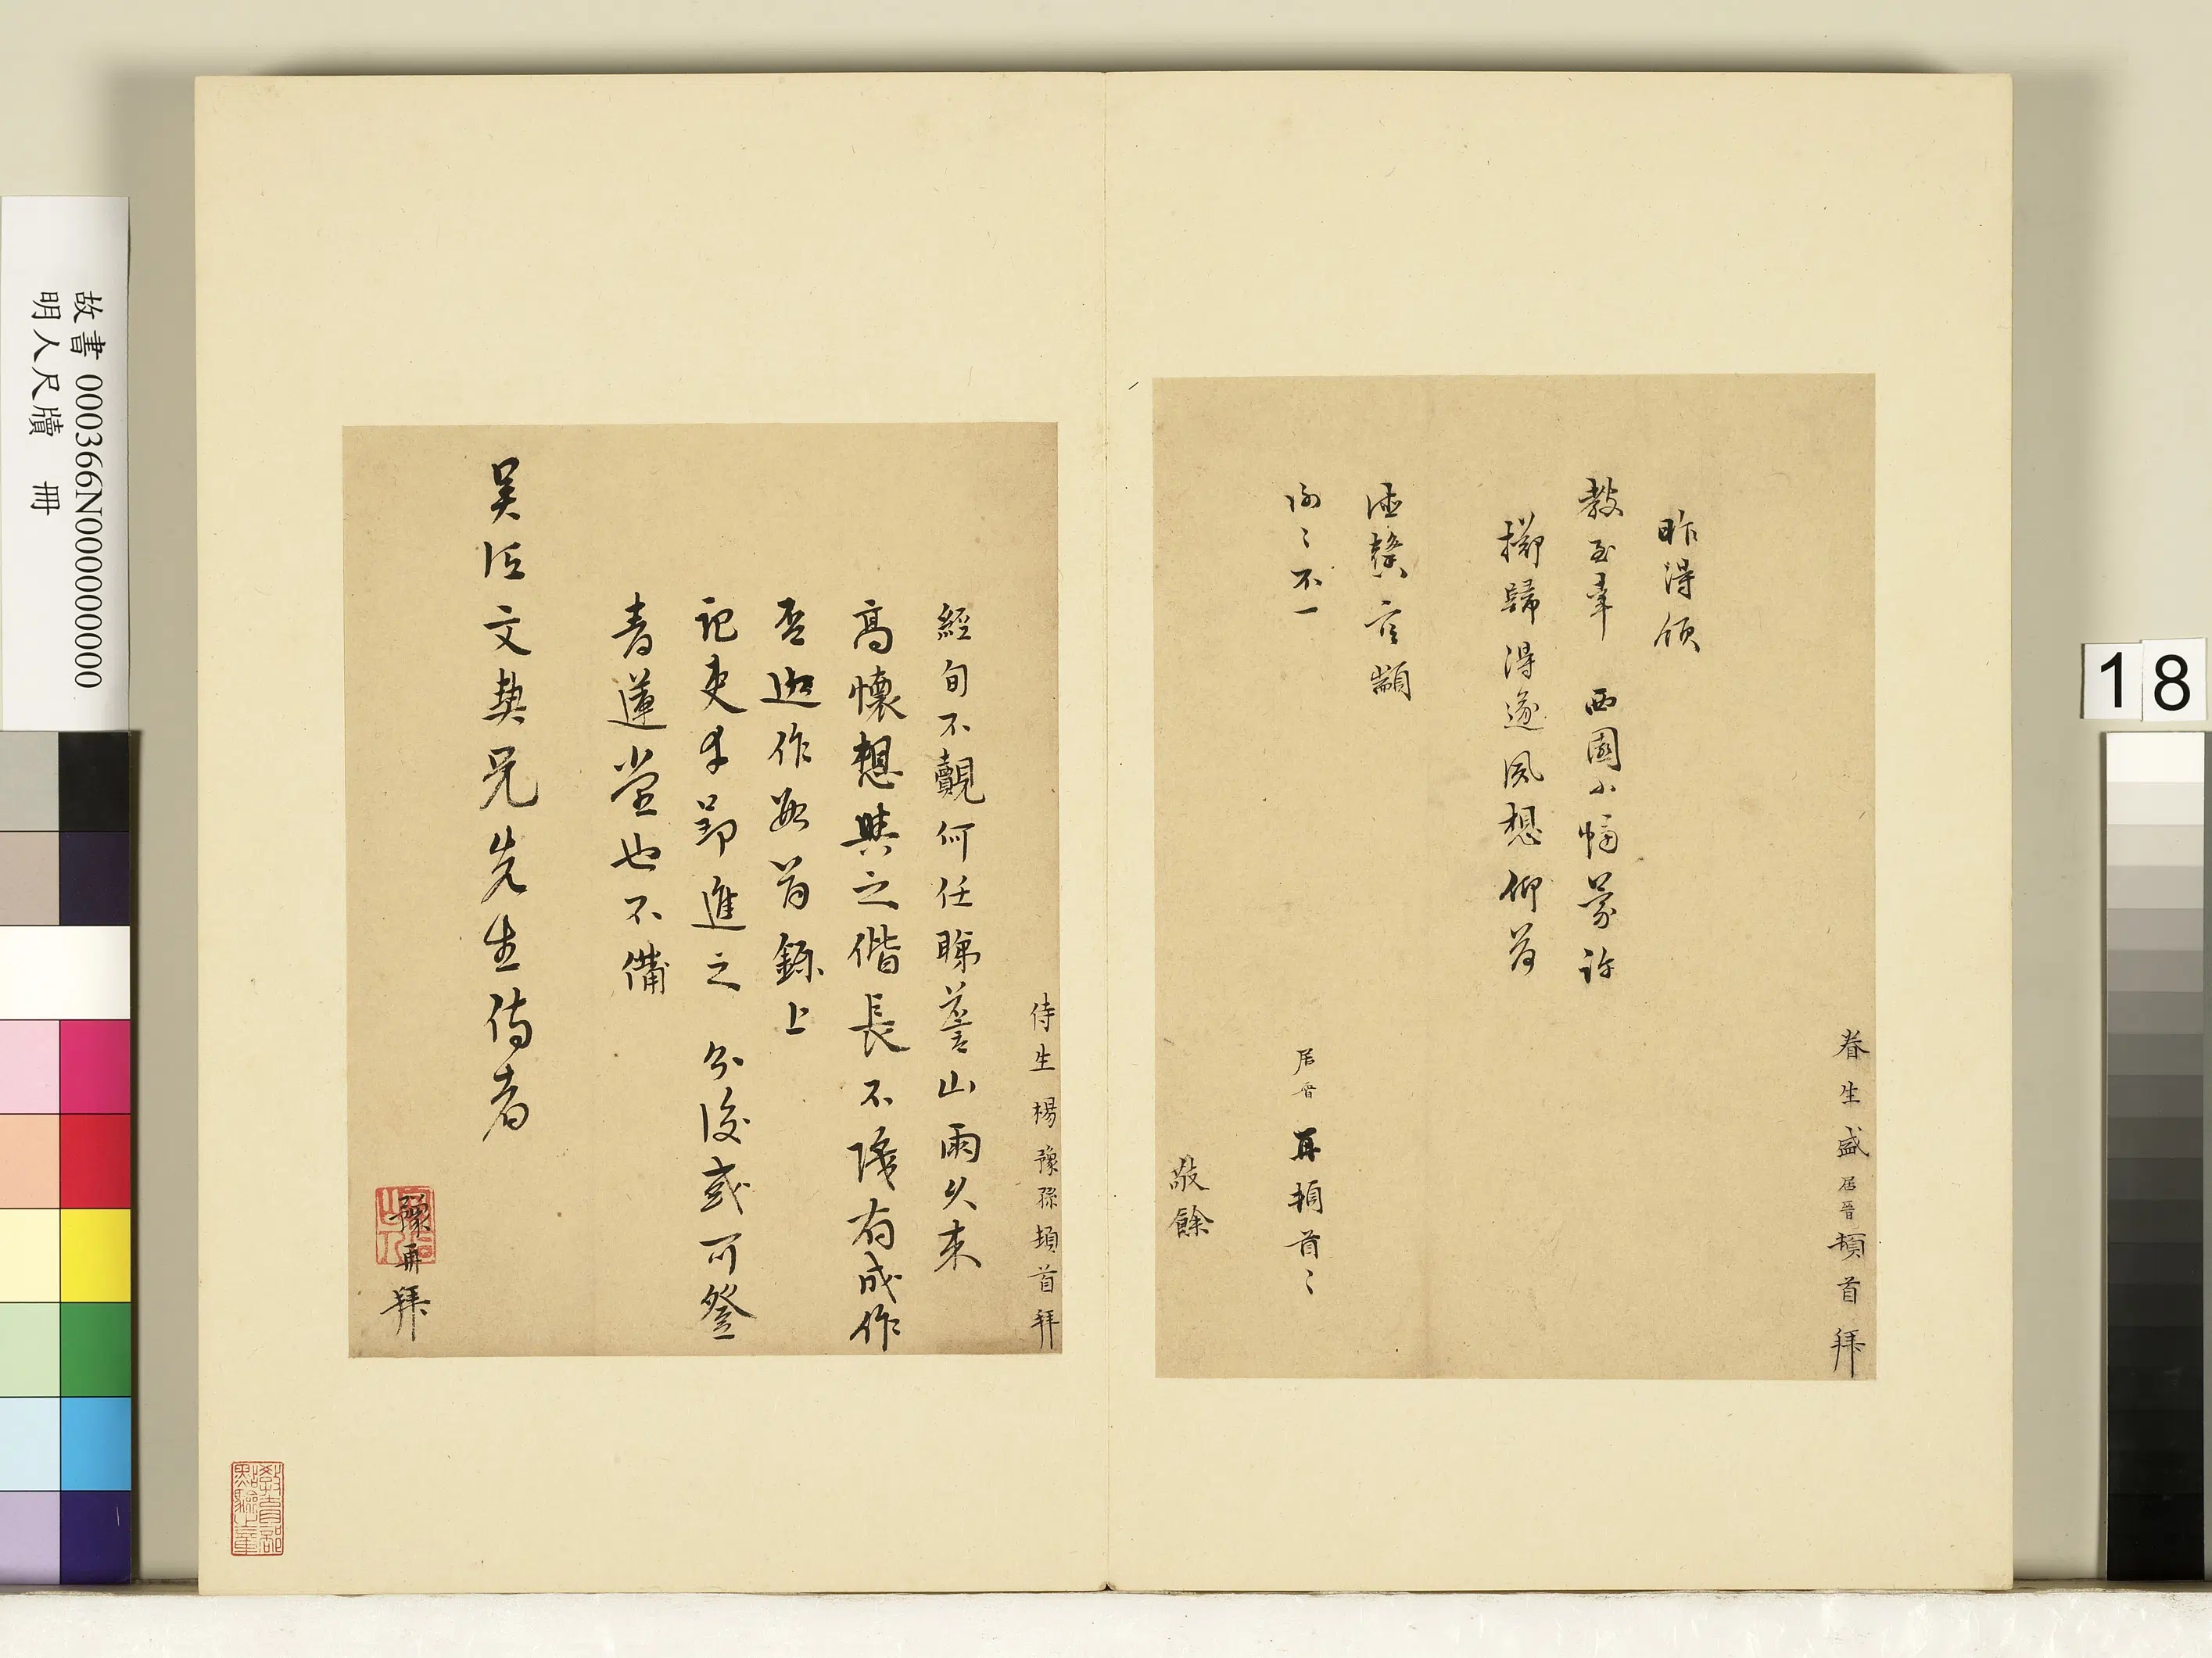 故書 000366N000000000
明人尺牘 冊
18
眷生盛居晉頓首拜
昨得領
教至幸 西園小幅蒙許
擲歸得遂風想仰荷
德
不一
居晉再頓首〻
敬餘
侍生楊豫孫頓首拜
經旬不覿何任睇詹山雨久來
高懷想與之偕長不淺有成作
否 作 首錄上
記 即進之 後或可登
青蓮堂也不備
吳江文契兄先生侍者
豫再拜
教育部點驗之章